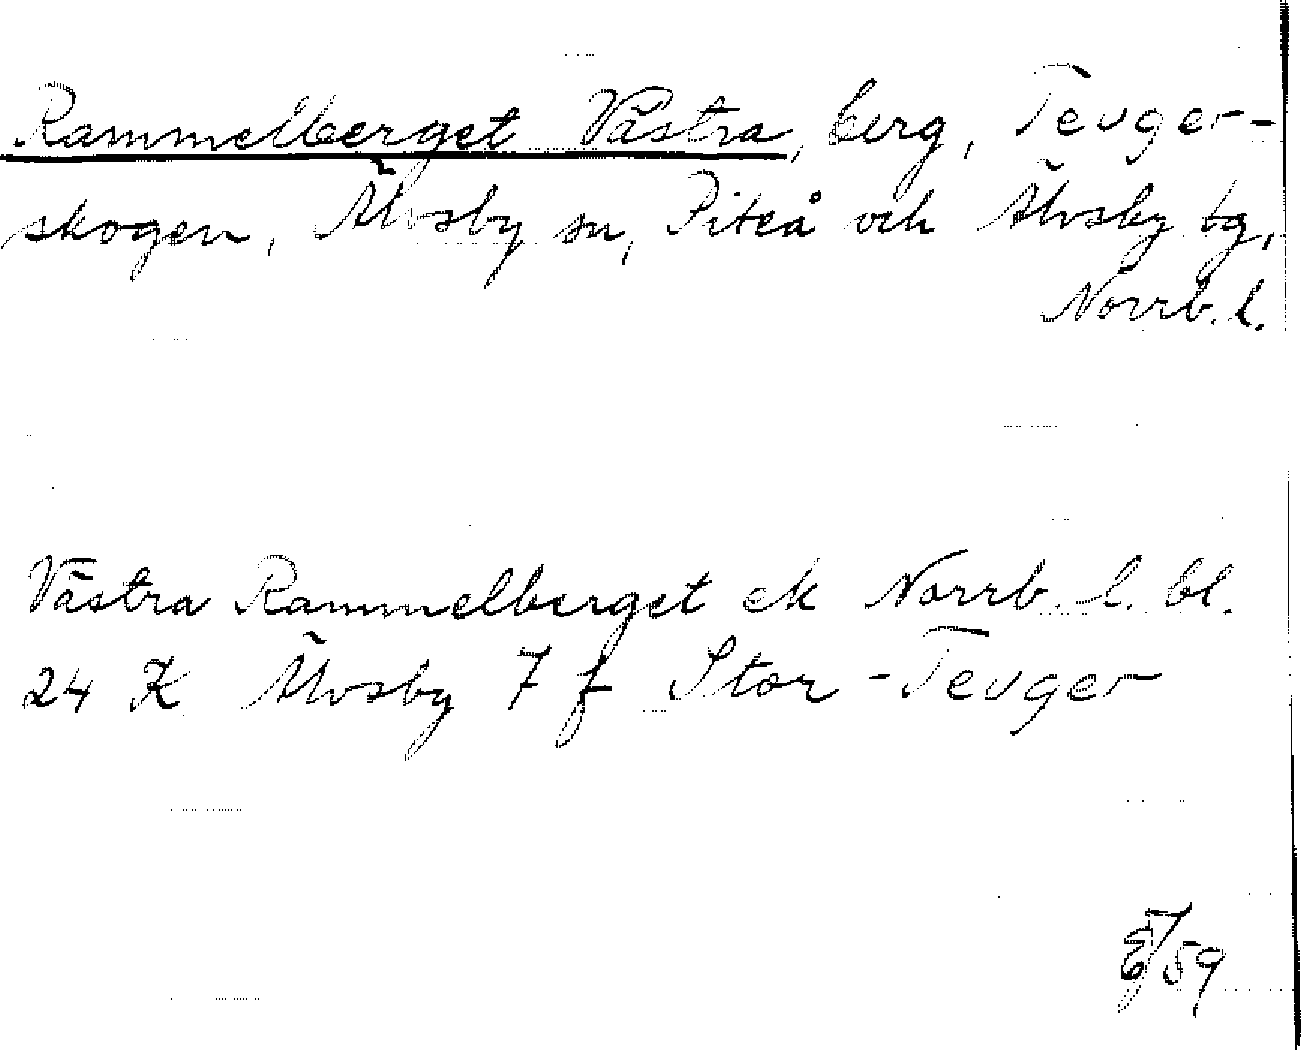 Rammelberget Västra, berg, Teuger-
skogen, Älvsby sn, Piteå och Älvsby tg,
Norrb. l.
Västra Rammelberget ek Norrb. l. bl.
24 K Älvsby 7 f Stor-Teuger
/59